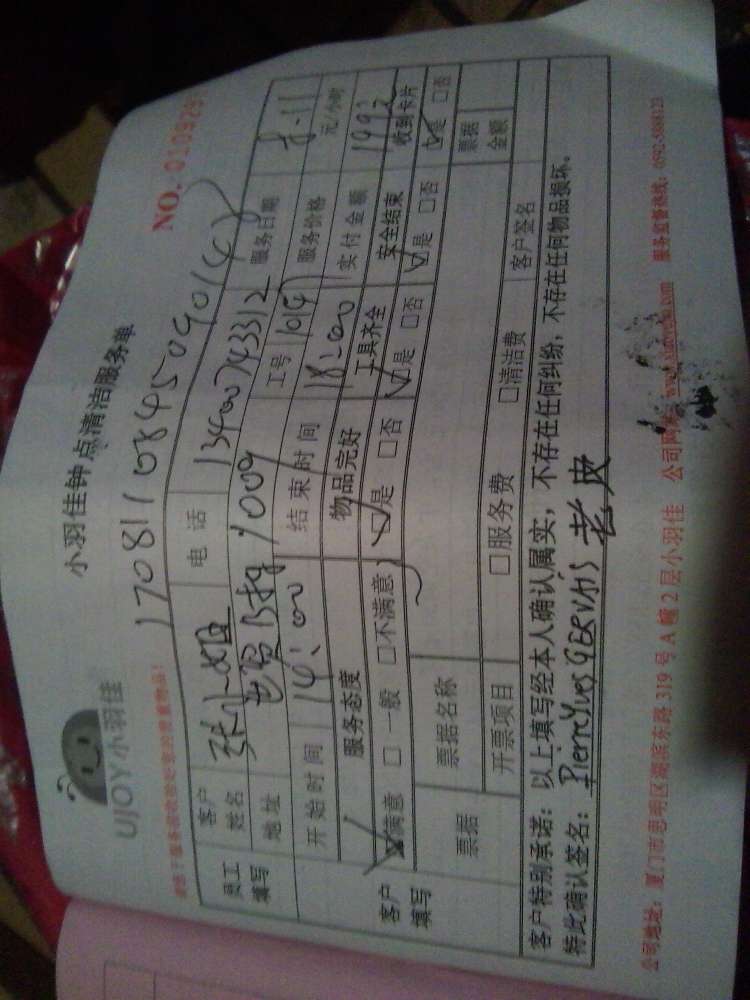 UJOY小羽佳
小羽佳钟点清洁服务单
NO. 010926
员工填写 客户姓名 张小姐 电话 服务日期 8.11
地址 1009 工号 1014 服务价格 元/小时
开始时间 14:00 结束时间 18:00 实付金额
客户填写 服务态度 物品完好 工具齐全 安全结束 收到卡片
满意 □一般 □不满意 是 □否 是 □否 是 □否 是 □否
票据 票据名称 票据金额
开票项目 □服务费 □清洁费 客户签名
客户特别承诺：以上填写经本人确认属实，不存在任何纠纷，不存在任何物品损坏。
特此确认签名：PierreYves GERVAIS 老皮
公司地址：厦门市思明区湖滨东路319号A幢2层小羽佳 公司网站： 服务监督热线：0592-5888123